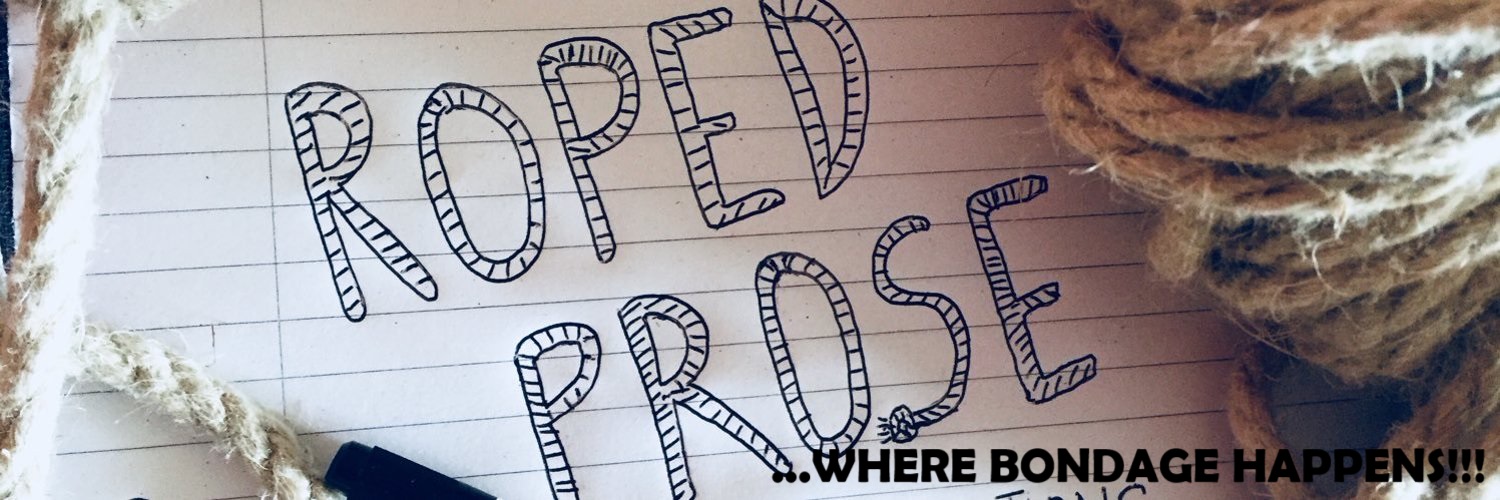 ROPED
PROSE
...WHERE BONDAGE HAPPENS!!!